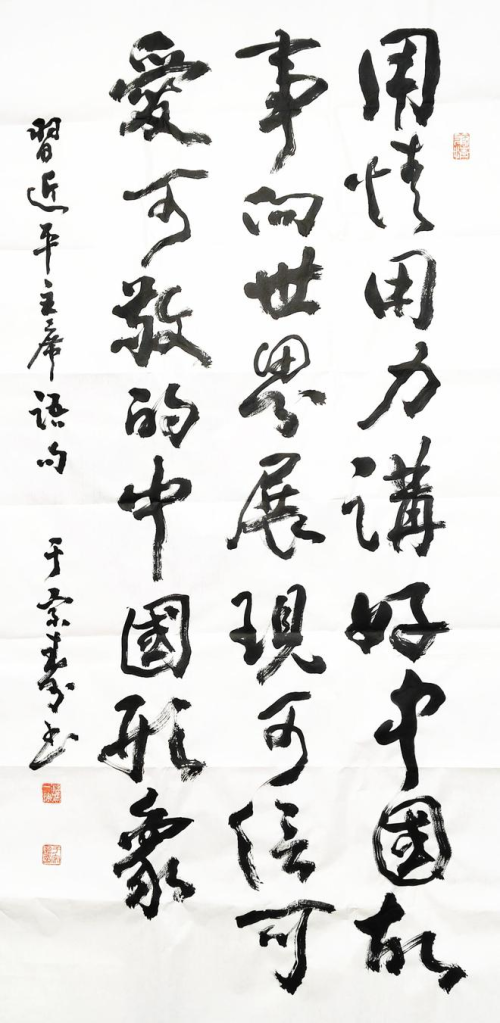 用情用力講好中國故
事向世界展現可信可
愛可敬的中國形象
習近平主席語句 于宗壽书